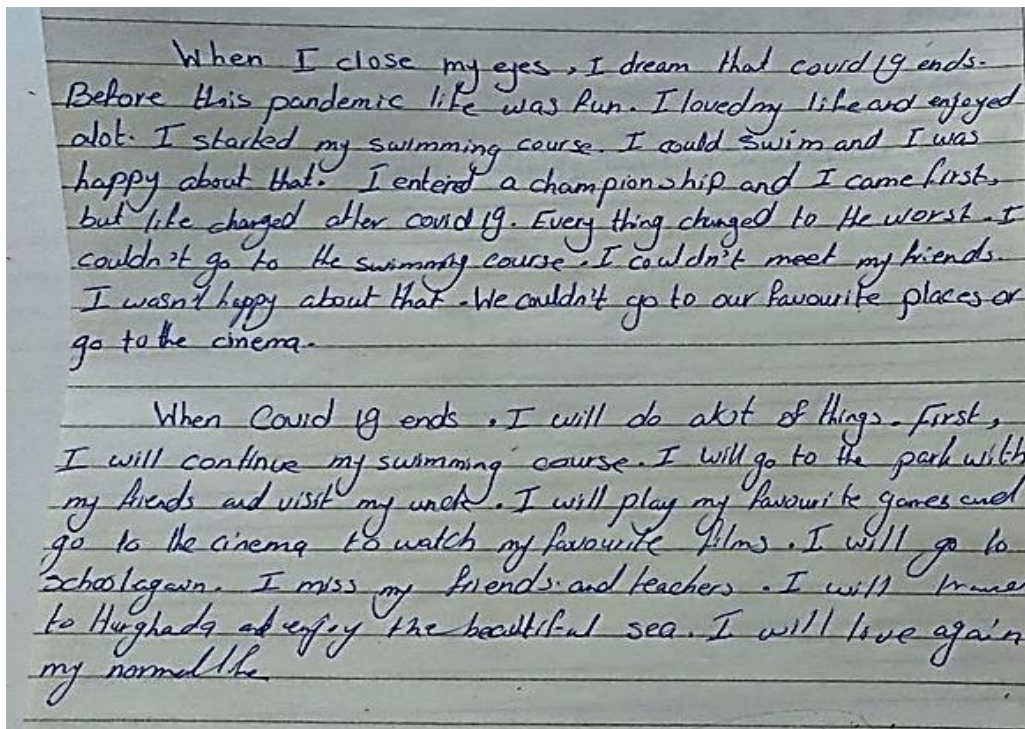 When I close my eyes, I dream that covid 19 ends.
Before this pandemic life was fun. I loved my life and enjoyed
alot. I started my swimming course. I could swim and I was
happy about that. I entered a championship and I came first,
but life changed after covid 19. Every thing changed to the worst. I
couldn't go to the swimming course. I couldn't meet my friends.
I wasn't happy about that. We couldn't go to our favourite places or
go to the cinema.
When Covid 19 ends. I will do alot of things. First,
I will continue my swimming course. I will go to the park with
my friends and visit my uncle. I will play my favourite games and
go to the cinema to watch my favourite films. I will go to
school again. I miss my friends and teachers. I will travel
to Hurghada and enjoy the beautiful sea. I will live again
my normal life